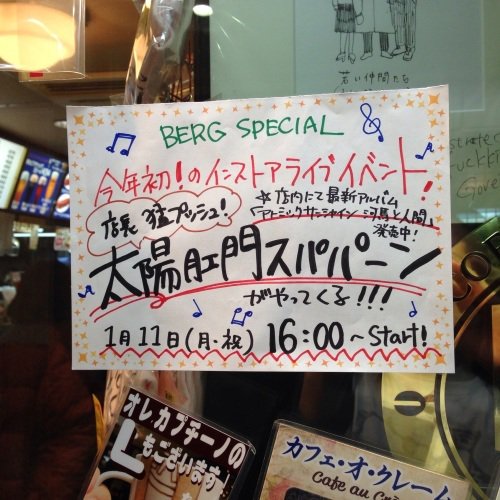 若い仲間たち
BERG SPECIAL
今年初!のインストアライブイベント!
店長 猛プッシュ!
☆店内にて最新アルバム
「アトミックサンシャイン:河馬と人間」
発売中!
太陽肛門スパパーン
がやってくる!!!
1月11日(月・祝) 16:00～Start!
オレカプチーノの
Lもございます!
カフェ・オ・クレーム
Cafe au